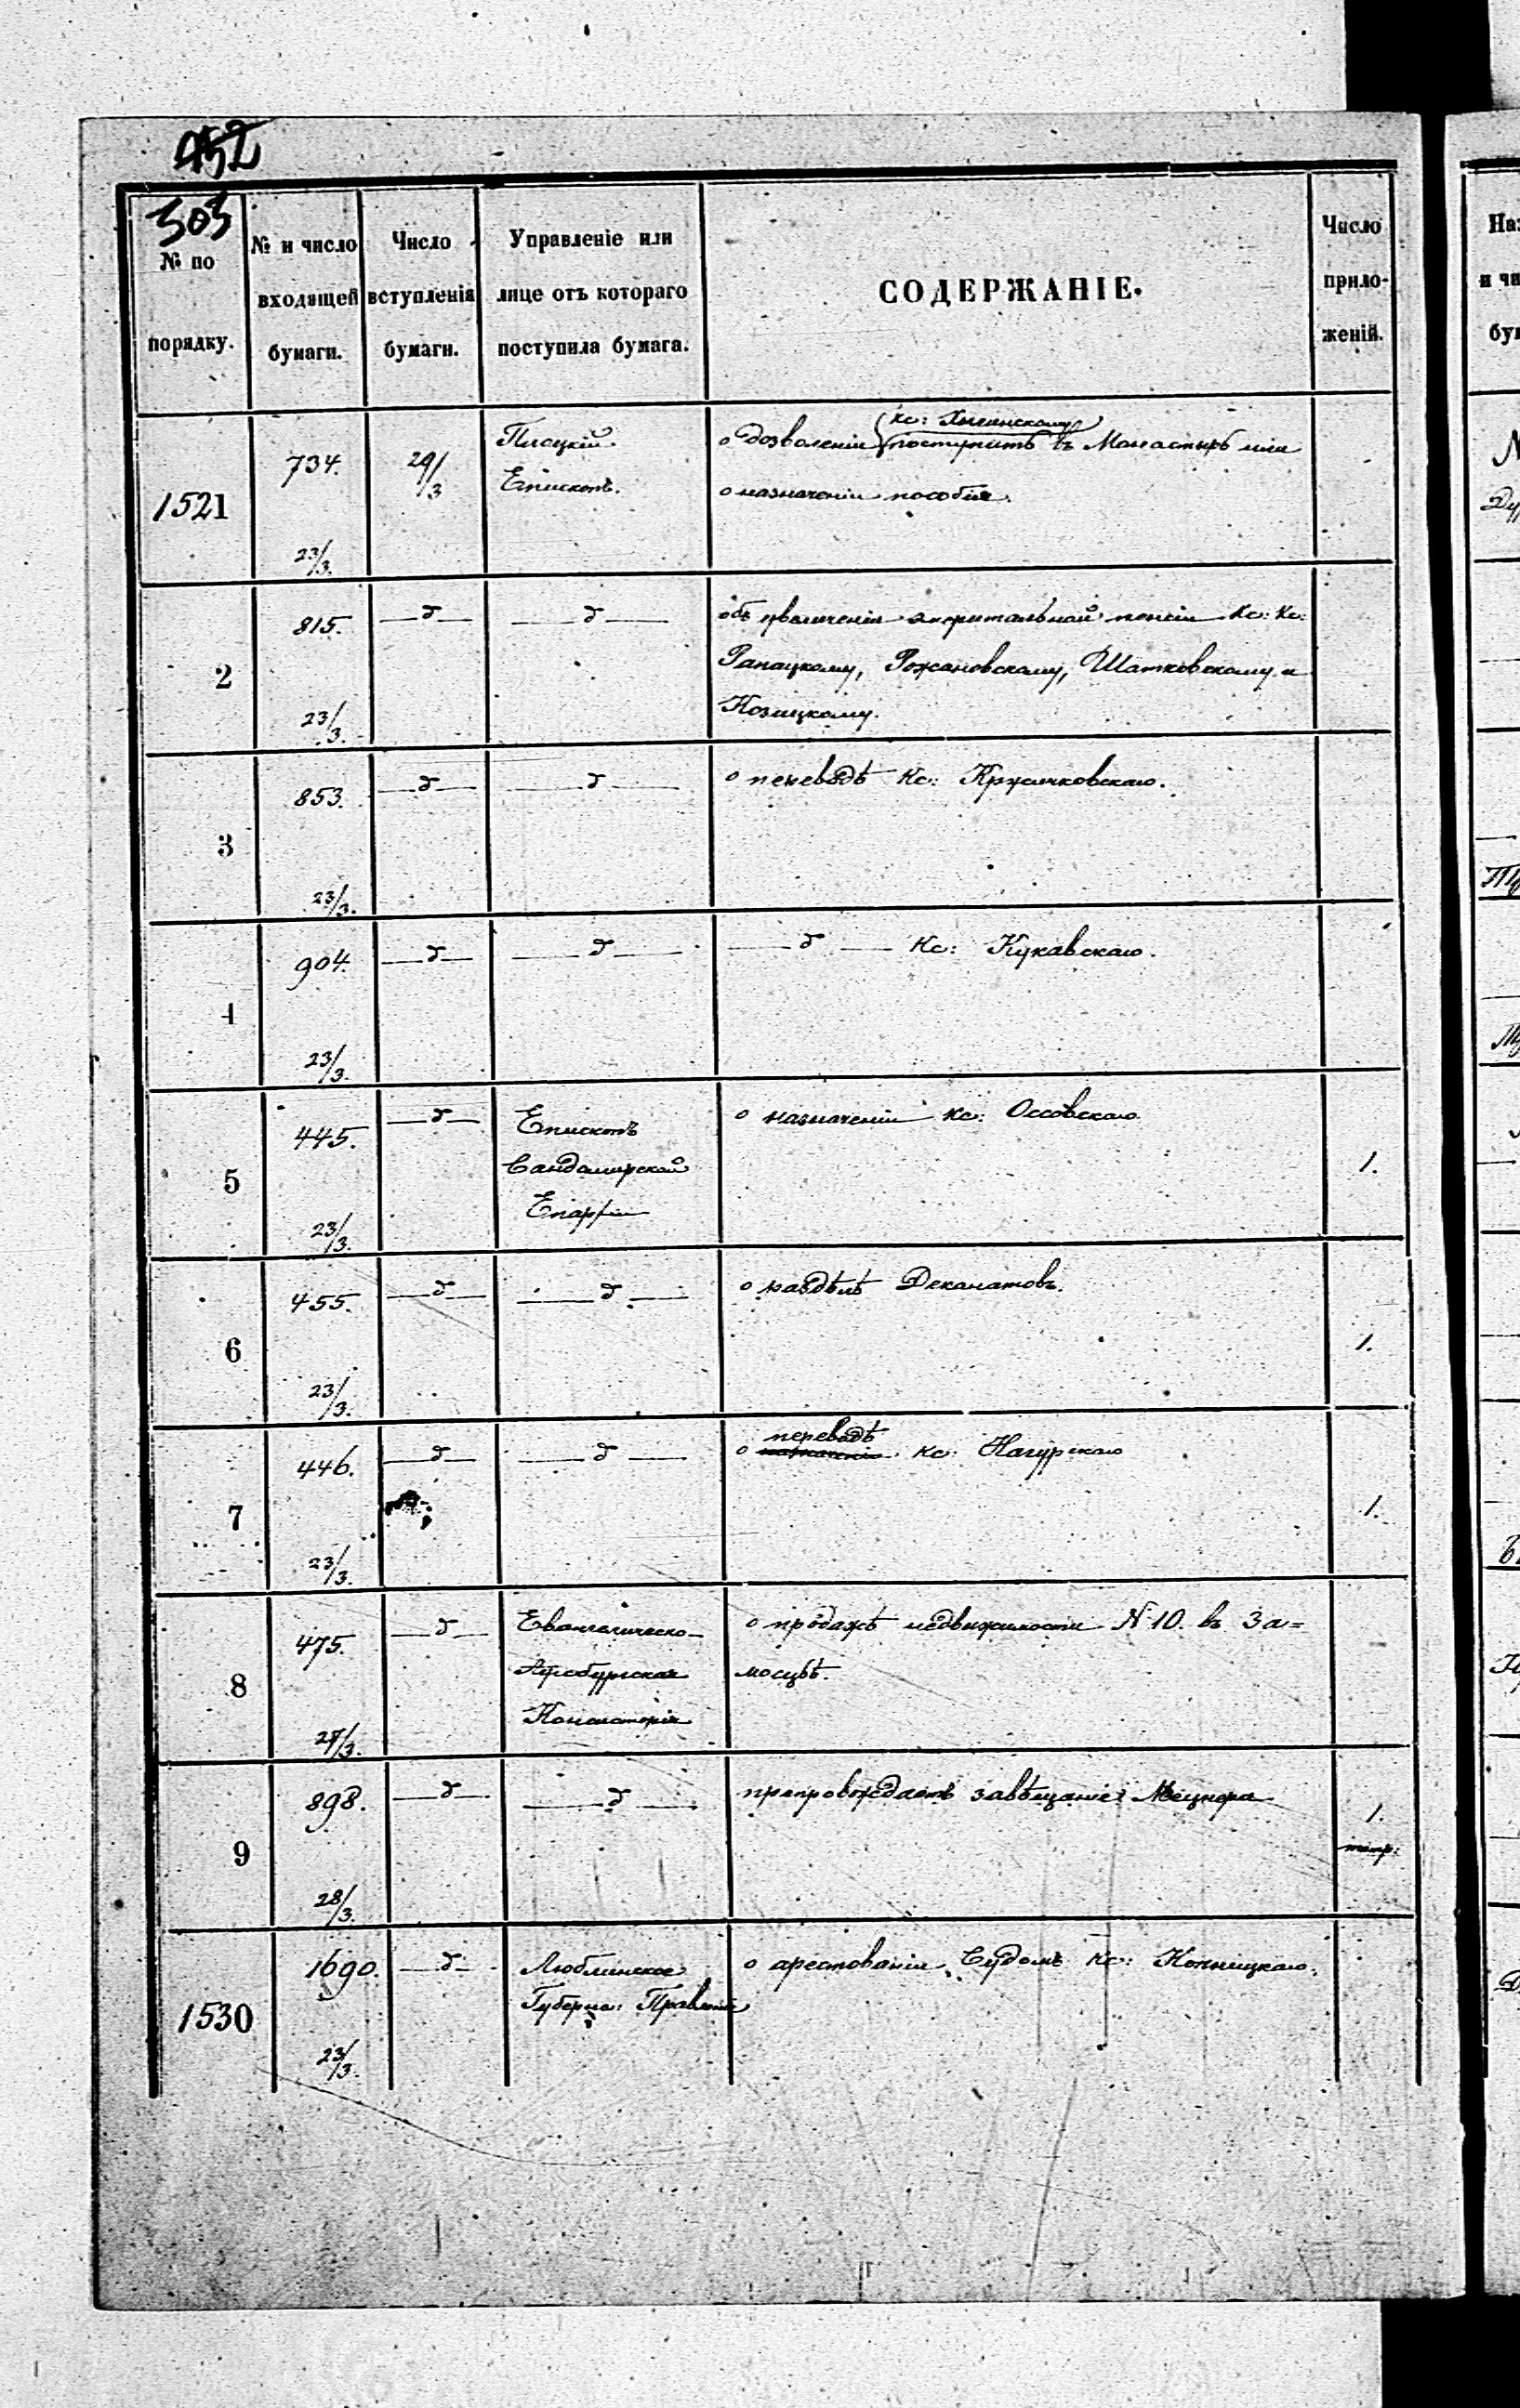 452
303
№ по порядку.
№ и число входящей бумаги.
Число вступленія бумаги.
Управленіе или лице отъ котораго поступила бумага.
СОДЕРЖАНІЕ.
Число приложеній.
1521
734.
23/3.
29/3
Плоцкій
Епископъ.
кс:
о дозволеніи поступить въ Монастырь или
о назначеніи пособія.
2
815.
23/3.
—д—
—д—
объ увеличеніи эмеритальной пенсіи Кс: Кс:
Рапацкому, Рожановскому, Шатковскому и
Козицкому.
3
853.
23/3.
—д—
—д—
о переводѣ Кс: Кржичковскаго.
4
904.
23/3.
—д—
—д—
—д— Кс: Кукавскаго.
5
445.
23/3.
—д—
Епископъ
Сандомирской
Епархіи
о назначеніи кс: Оссовскаго
1.
6
455.
23/3.
—д—
—д—
о раздѣлѣ Деканатовъ.
1.
7
446.
23/3.
—д—
—д—
переводѣ
о назначеніи кс: Нагурскаго
1.
8
475.
27/3.
—д—
Евангелическо-
Аугсбургская
Консисторія
о продажѣ недвижимости N 10. въ За=
мосцѣ.
9
898.
28/3.
—д—
—д—
препровождаетъ завѣщаніе Мецнера
1.
1530
1690.
23/3.
—д—
Люблинское
Губерна: Правленіе
о арестованіи Судомъ Кс: Копницкаго.